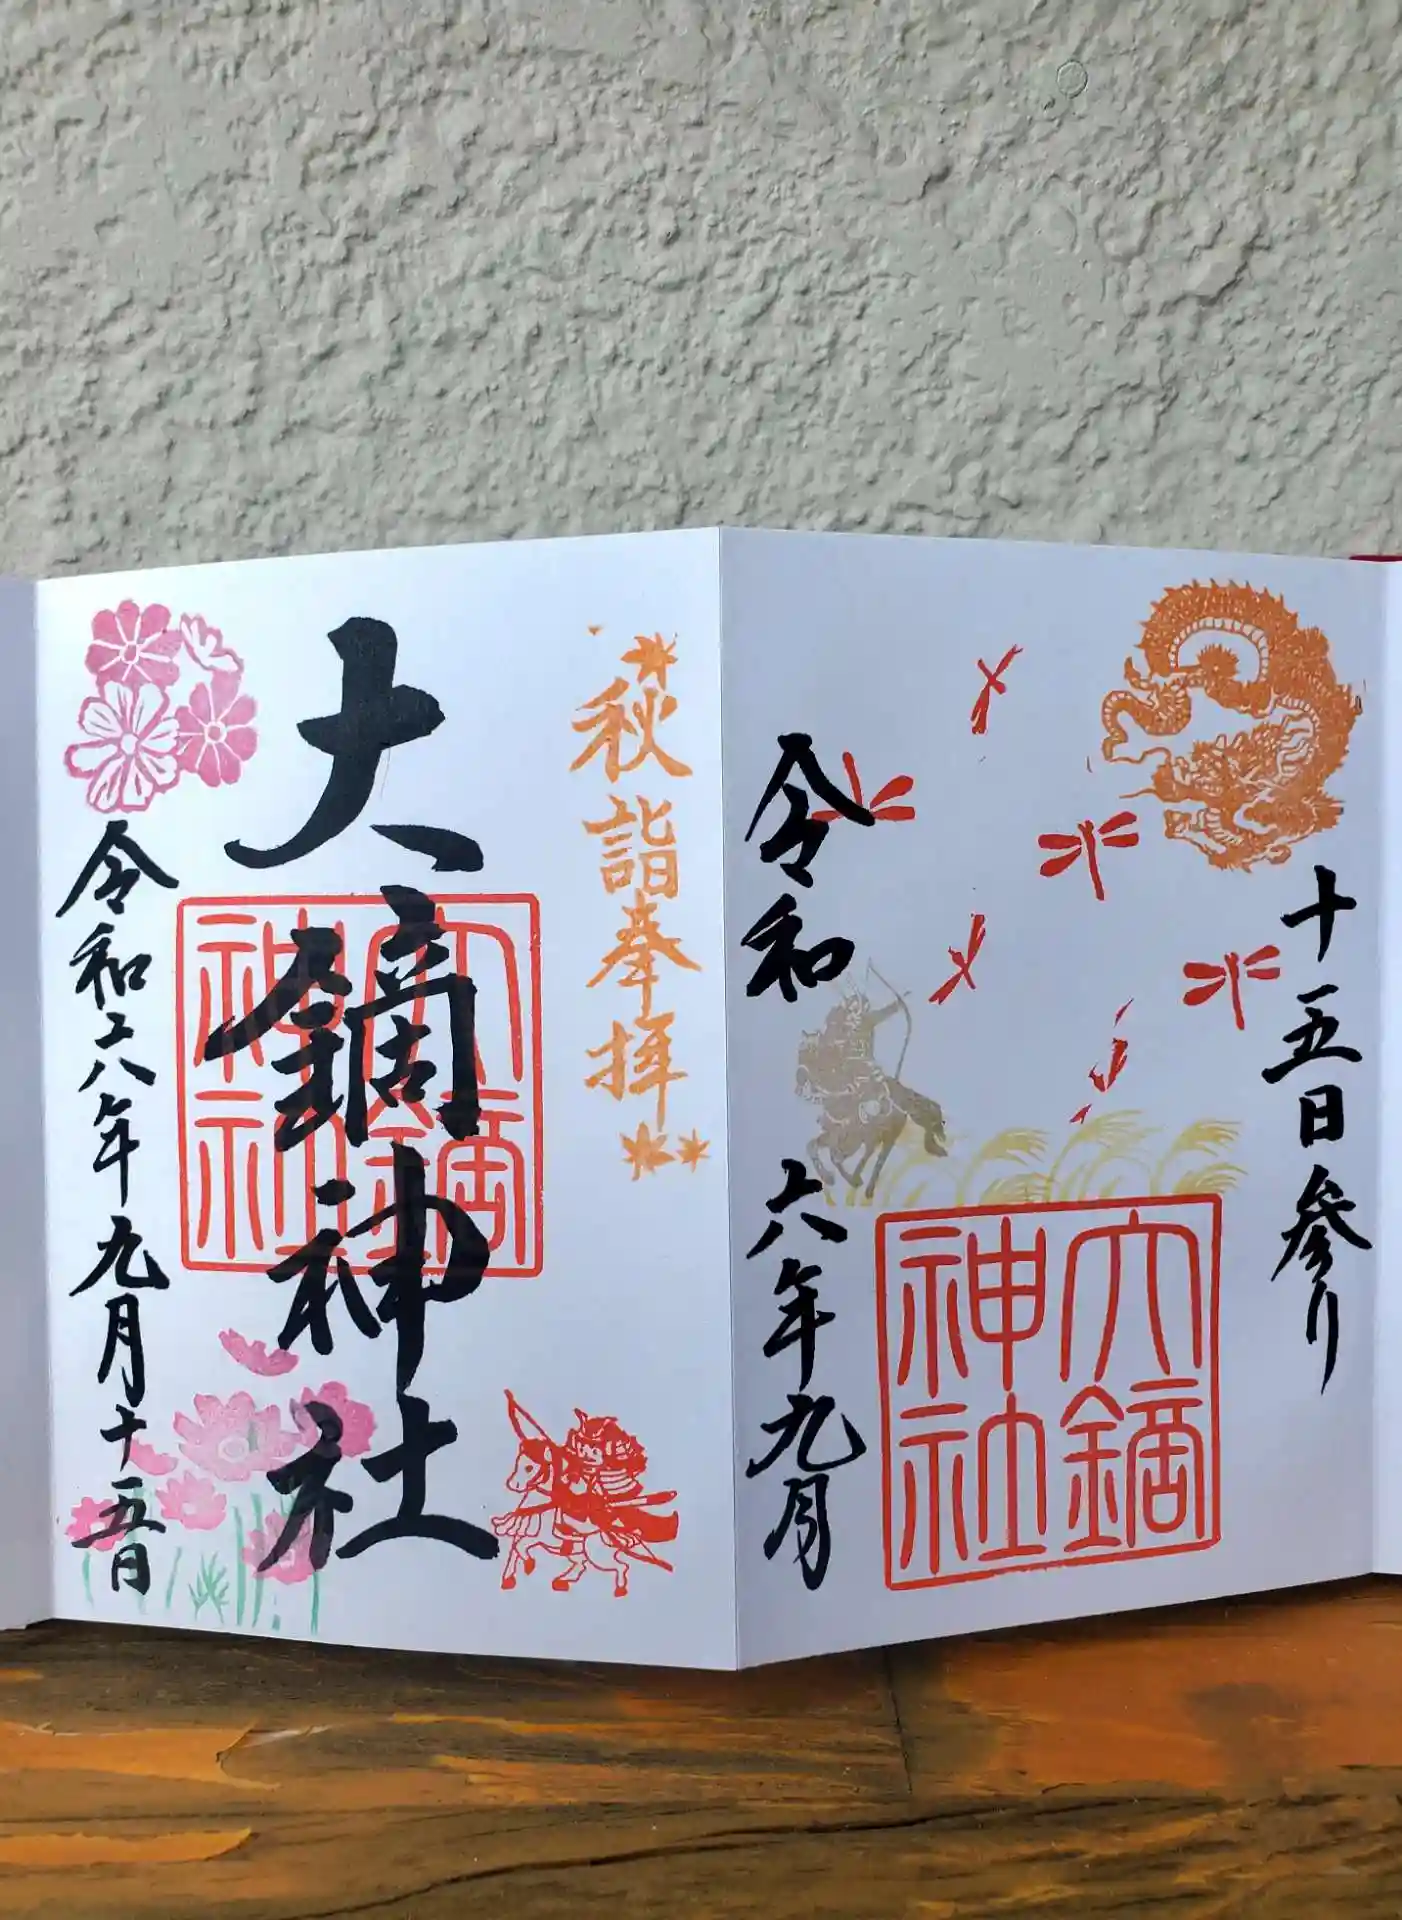 十五日参り
令和
六年九月
大鏑神社
秋詣奉拝
大鏑神社
大鏑神社
令和六年九月十五日